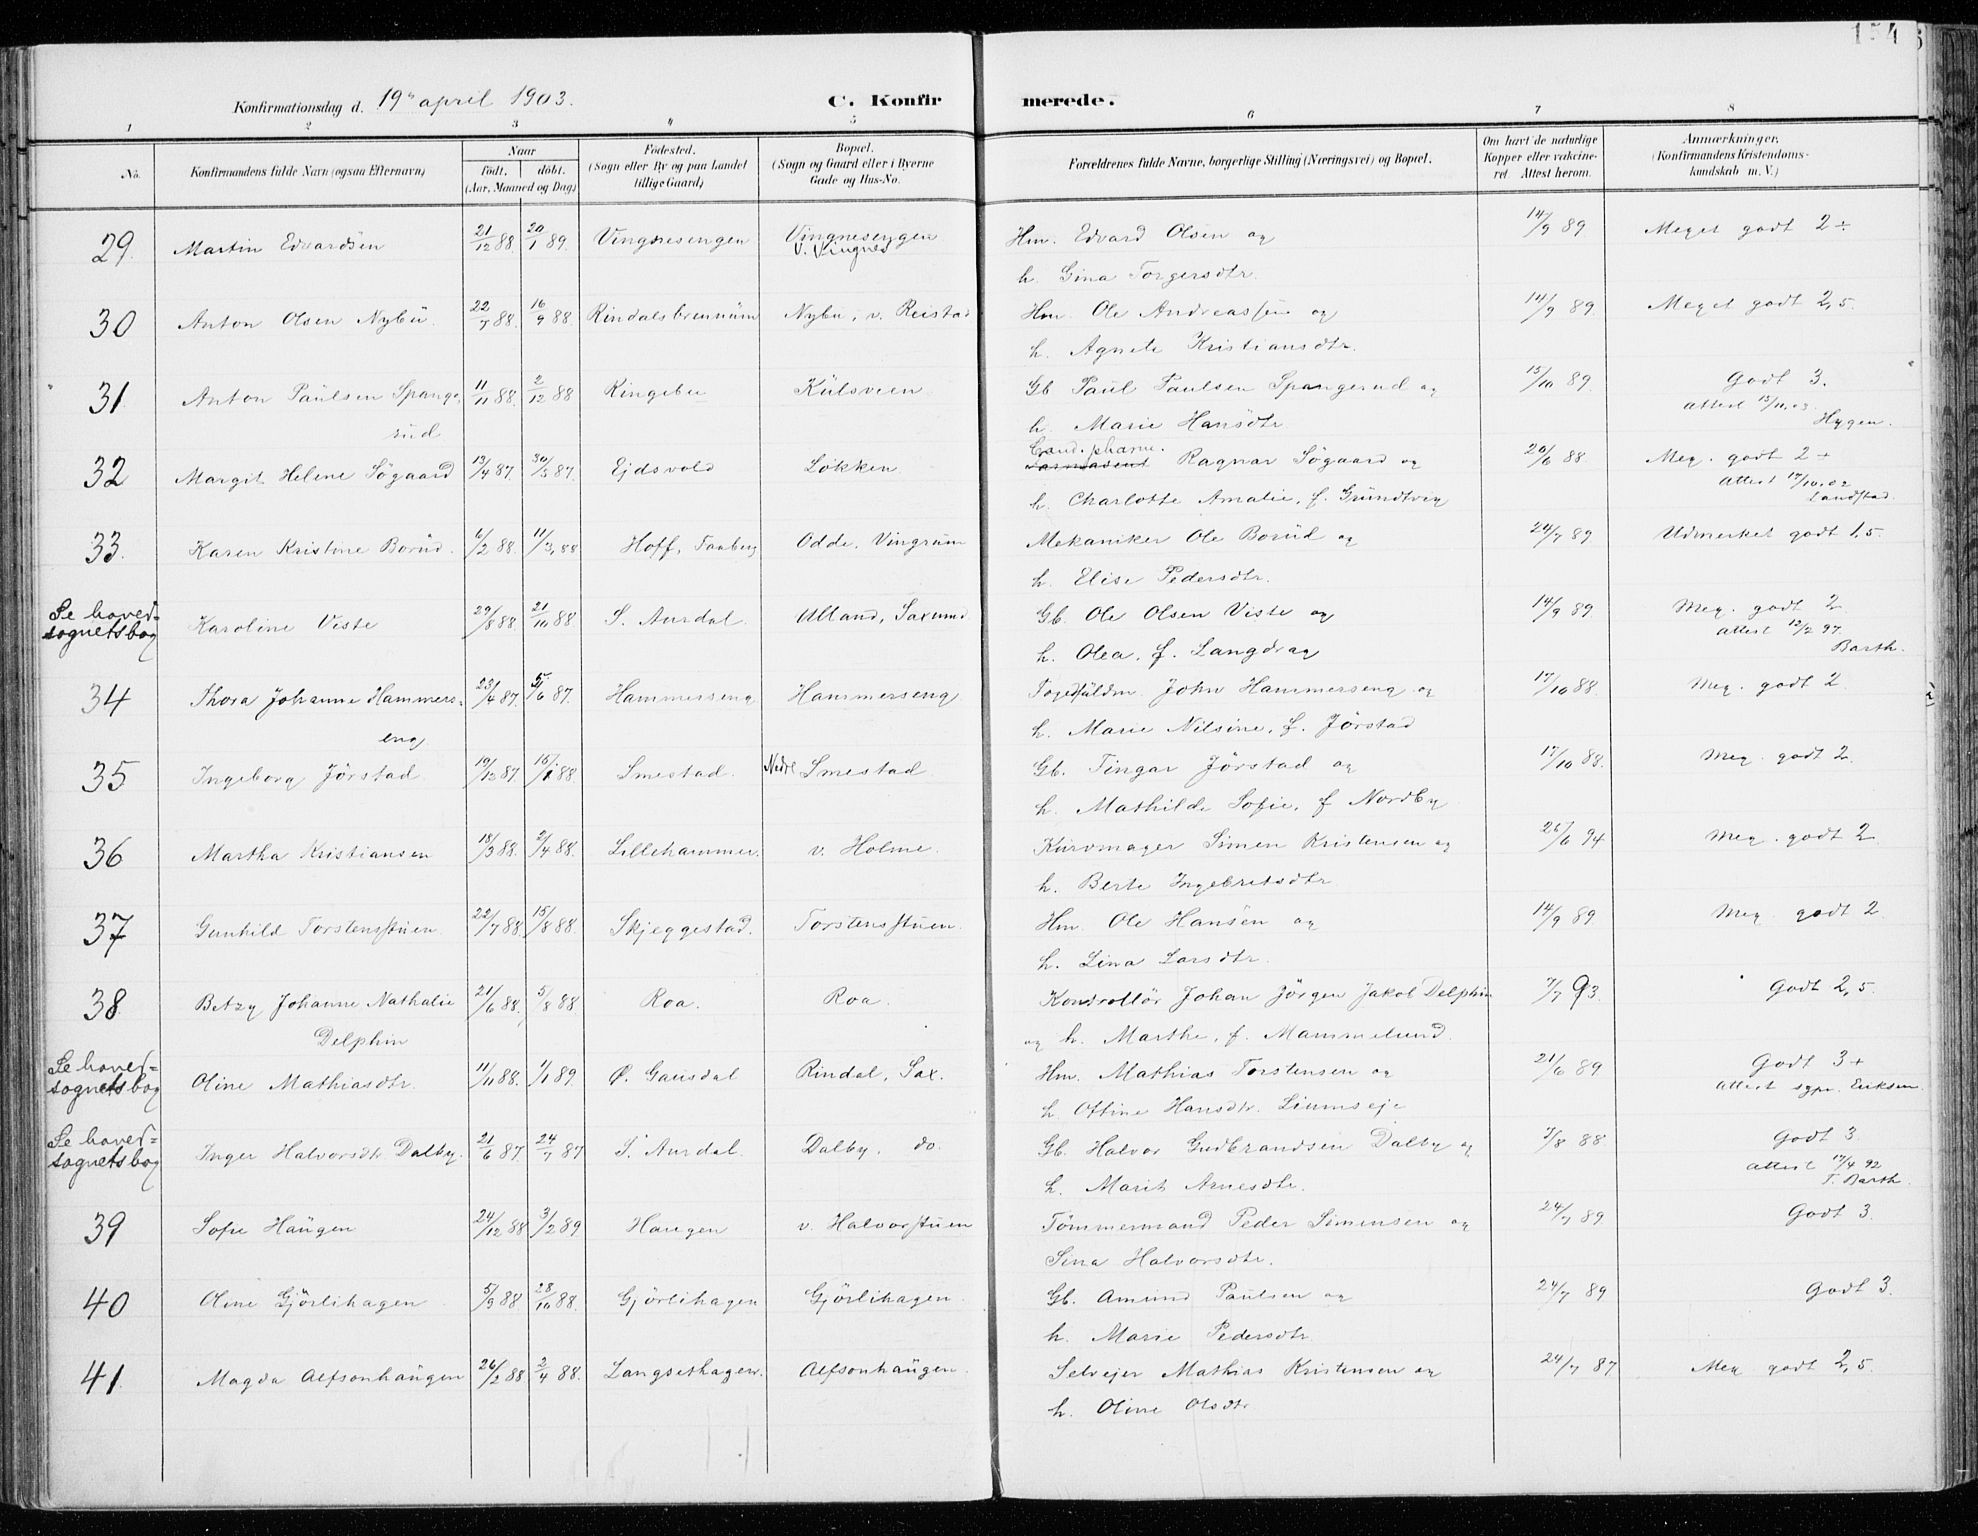 154
Konfirmationsdag d. 19de april 1903. C. Konfirmerede.
1 2 3 4 5 6 7 8
No. Konfirmandens fulde Navn (ogsaa Efternavn) Naar født. døbt. (Aar, Maaned og Dag) Fødested. (Sogn eller By og paa Landet tillige Gaard) Bopæl. (Sogn og Gaard eller i Byerne Gade og Hus-No. Forældrenes fulde Navne, borgerlige Stilling (Næringsvei) og Bopæl. Om havt de naturlige Kopper eller vakcineret. Attest herom. Anmærkninger. (Konfirmandens Kristendomskundskab m. V.)
29. Martin Edvardsen 21/12 88. 20/1 89. Vingnesengen Vingnesengen Hm. Edvard Olsen og 14/9 89 Meget godt 2÷
v. Vingnes h. Gina Torgersdtr.
30 Anton Olsen Nybü. 22/7 88. 16/9 88. Rindalsbrenním Nybu, v. Reistad Hm. Ole Andreassen og 14/9 89. Meget godt 2,5.
h. Agnete Kristiansdtr.
31 Anton Paülsen Spange- 11/11 88. 2/12 88 Ringebu Külsveen Gb Paul Paulsen Spangerud og 15/10 89. Godt 3.
rüd h. Marie Hansdtr attest 13/11.03. Hygen.
32 Margit Helene Sögaard 13/4 87. 30/5 87. Ejdsvold Lökken Cand. pharm. Ragnar Sögaard og 20/6 88. Meg. godt 2+
h. Charlotte Amalie, f. Gründtvig attest 17/10.02 Landstad.
33. Karen Kristine Borüd. 6/2 88. 11/3,88 Hoff, Faaberg Odde, Vingrüm Mekaniker Ole Borüd og 24/7 89 Udmerket godt 1,5.
h. Elise Pedersdtr.
Se hoved-
sognets bog Karoline Viste 29/8 88. 21/10 88 S. Aurdal. Ulland, Saxumd Gb. Ole Olsen Viste og 14/9 89 Meg. godt 2
h. Olea, f. Langdrag attest 12/2 97. Barth.
34 Thora Johanne Hammers- 23/4 87. 5/6 87. Hammerseng Hammerseng Fogedfüldm. John Hammerseng og 17/10 88. Meg. godt 2.
eng h. Marie Nilsine, f. Jörstad
35 Ingeborg Jörstad 19/12 87. 15/1 88. Smestad. Nedre Smestad Gb. Tingar Jörstad og 17/10 88. Meg. godt 2.
h. Mathilde Sofie, f Nordby
36 Martha Kristiansen 18/3 88. 2/4 88. Lillehammer. v. Holme. Kürvmager Simen Kristensen og 26/6 94 Meg. godt 2
h. Berte Ingebretsdtr
37 Gunhild Torstensstuen. 22/7 88. 15/8 88. Skjeggestad. Torstensstuen. Hm. Ole Hansen og 14/9 89. Meg. godt 2.
h. Lina Larsdtr.
38. Betzy Johanne Nathalie 21/6 88. 5/8 88 Roa. Roa. Kontrollör Johan Jörgen Jakob Delphin 7/7 93. Godt 2,5.
Delphin og h. Marthe, f. Mammelund.
Se hoved-
sognets bog Oline Mathiasdtr. 11/11 88. 1/1 89. Ø. Gausdal Rindal, Sax. Hm. Mathias Torstensen og 21/6 89 Godt 3+
h. Oftine Hansdtr. Liumseje attest sgpr. Eriksen.
Se hoved-
sognets bog Inger Halvorsdtr Dalby. 21/6 87. 24/7 87 S. Aurdal. Dalby, do. Gb. Halvor Gudbrandsen Dalby og 7/8 88. Godt 3.
h. Marit Arnesdtr. attest 17/4 92 T. Barth.
39 Sofie Haügen 24/12 88 3/2 89 Haugen v. Halvorstuen Tömmermand Peder Simensen og 24/7 89 Godt 3.
Sina Halvorsdtr.
40 Oline Gjörlihagen 5/9 88 28/10 88. Gjörlihagen Gjörlihagen. Gb. Amünd Paulsen og 24/7 89 Godt 3.
h. Marie Pedersdtr.
41. Magda Alfsonhaügen 26/2 88 2/4 88. Langsethagen. Alfsonhaügen. Selvejer Mathias Kristensen og 24/7 87 Meg godt 2,5.
h. Oline Olsdtr